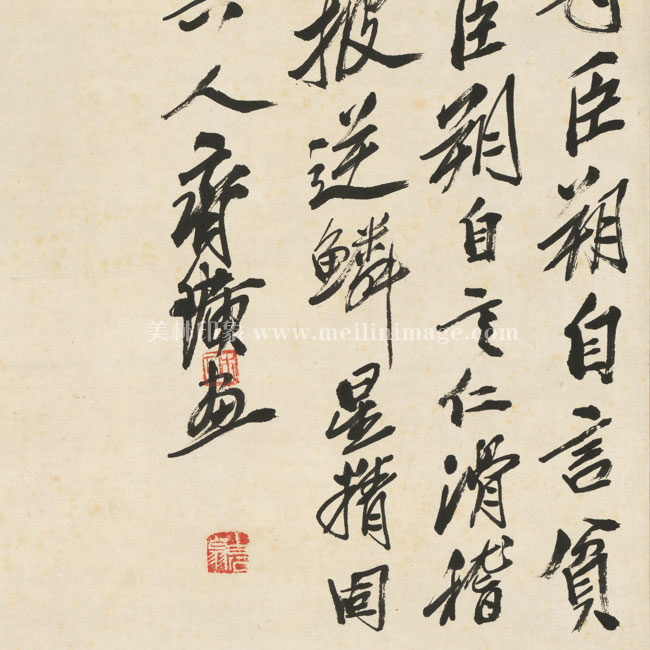 臣朔自言貧
臣朔自言仁滑稽
披逆鱗星精固
人齊璜畫
美林印象 www.meilinimage.com